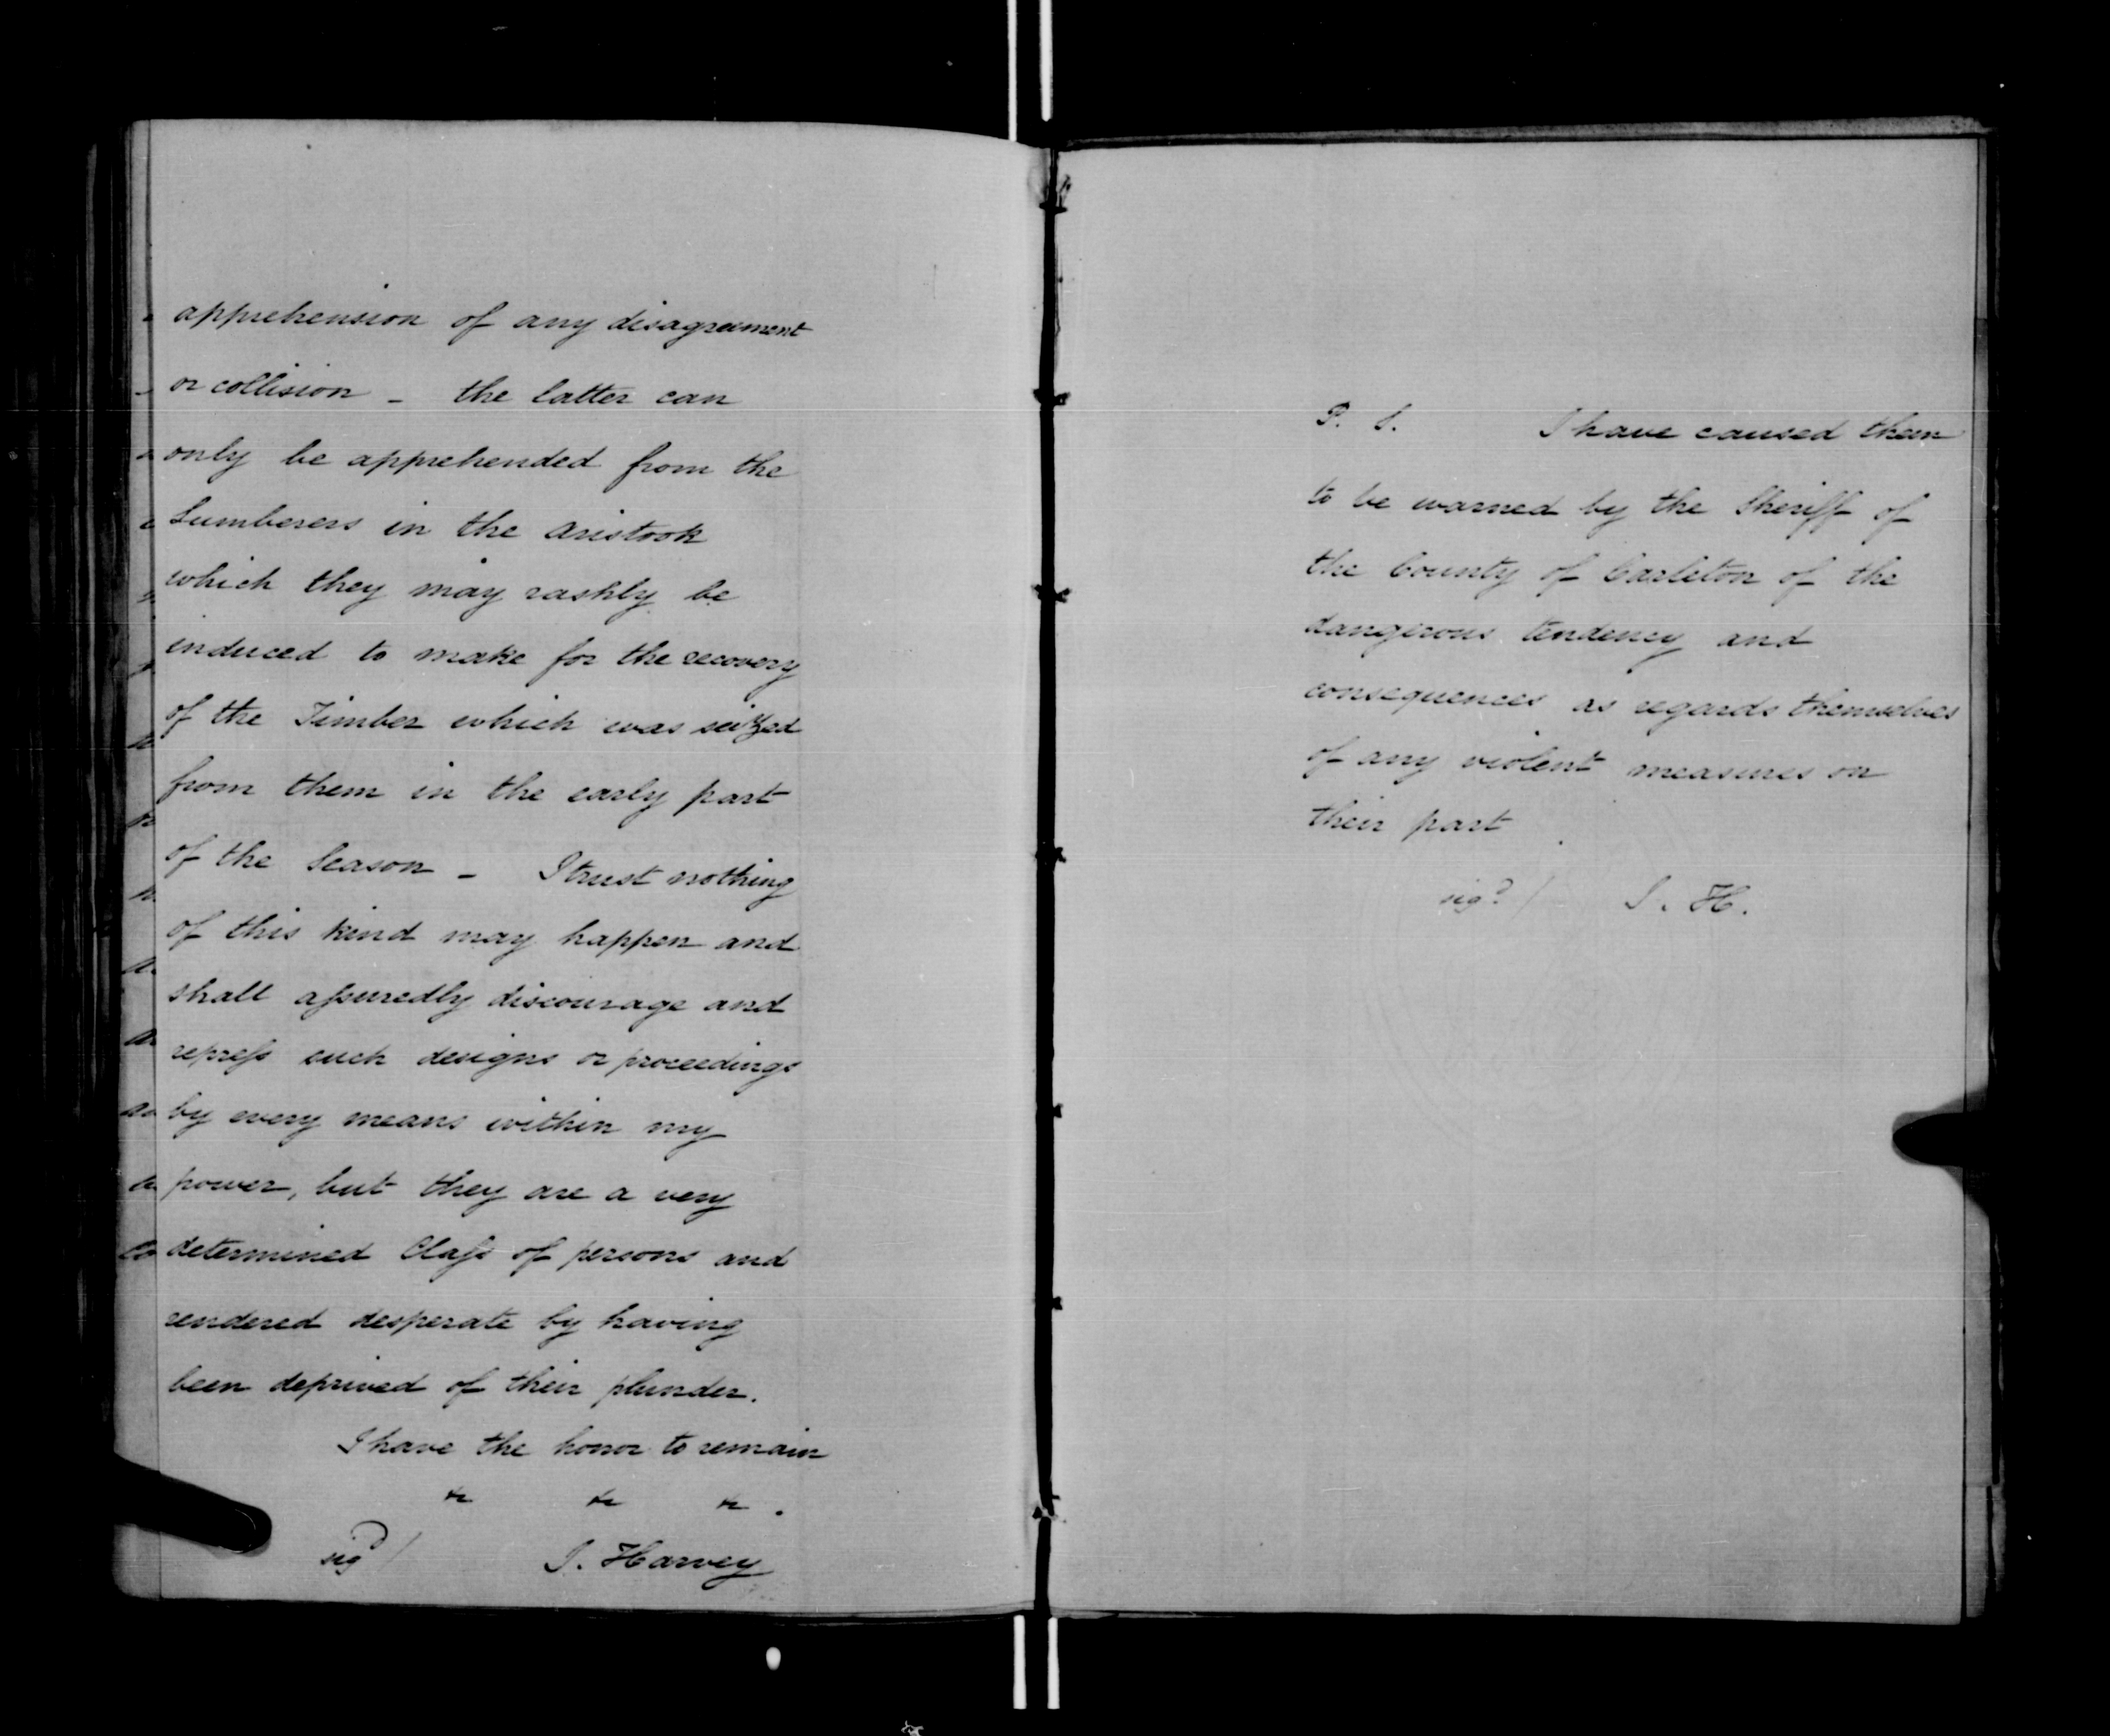 apprehension of any disagreement
or collision - the latter can
only be apprehended from the
Lumberers in the aristook
which they may rashly be
induced to make for the recovery
of the Timber which was seized
from them in the early part
of the Season - I trust nothing
of this kind may happen and
shall assuredly discourage and
repress such designs or proceedings
by every means within my
power, but they are a very
determined Class of persons and
rendered desperate by having
been deprived of their plunder.
I have the honor to remain
&c &c &c.
sigd / J. Harvey
P. S. I have caused them
to be warned by the Sheriff of
the County of Carleton of the
dangerous tendency and
consequences as regards themselves
of any violent measures on
their part
sigd / J. H.